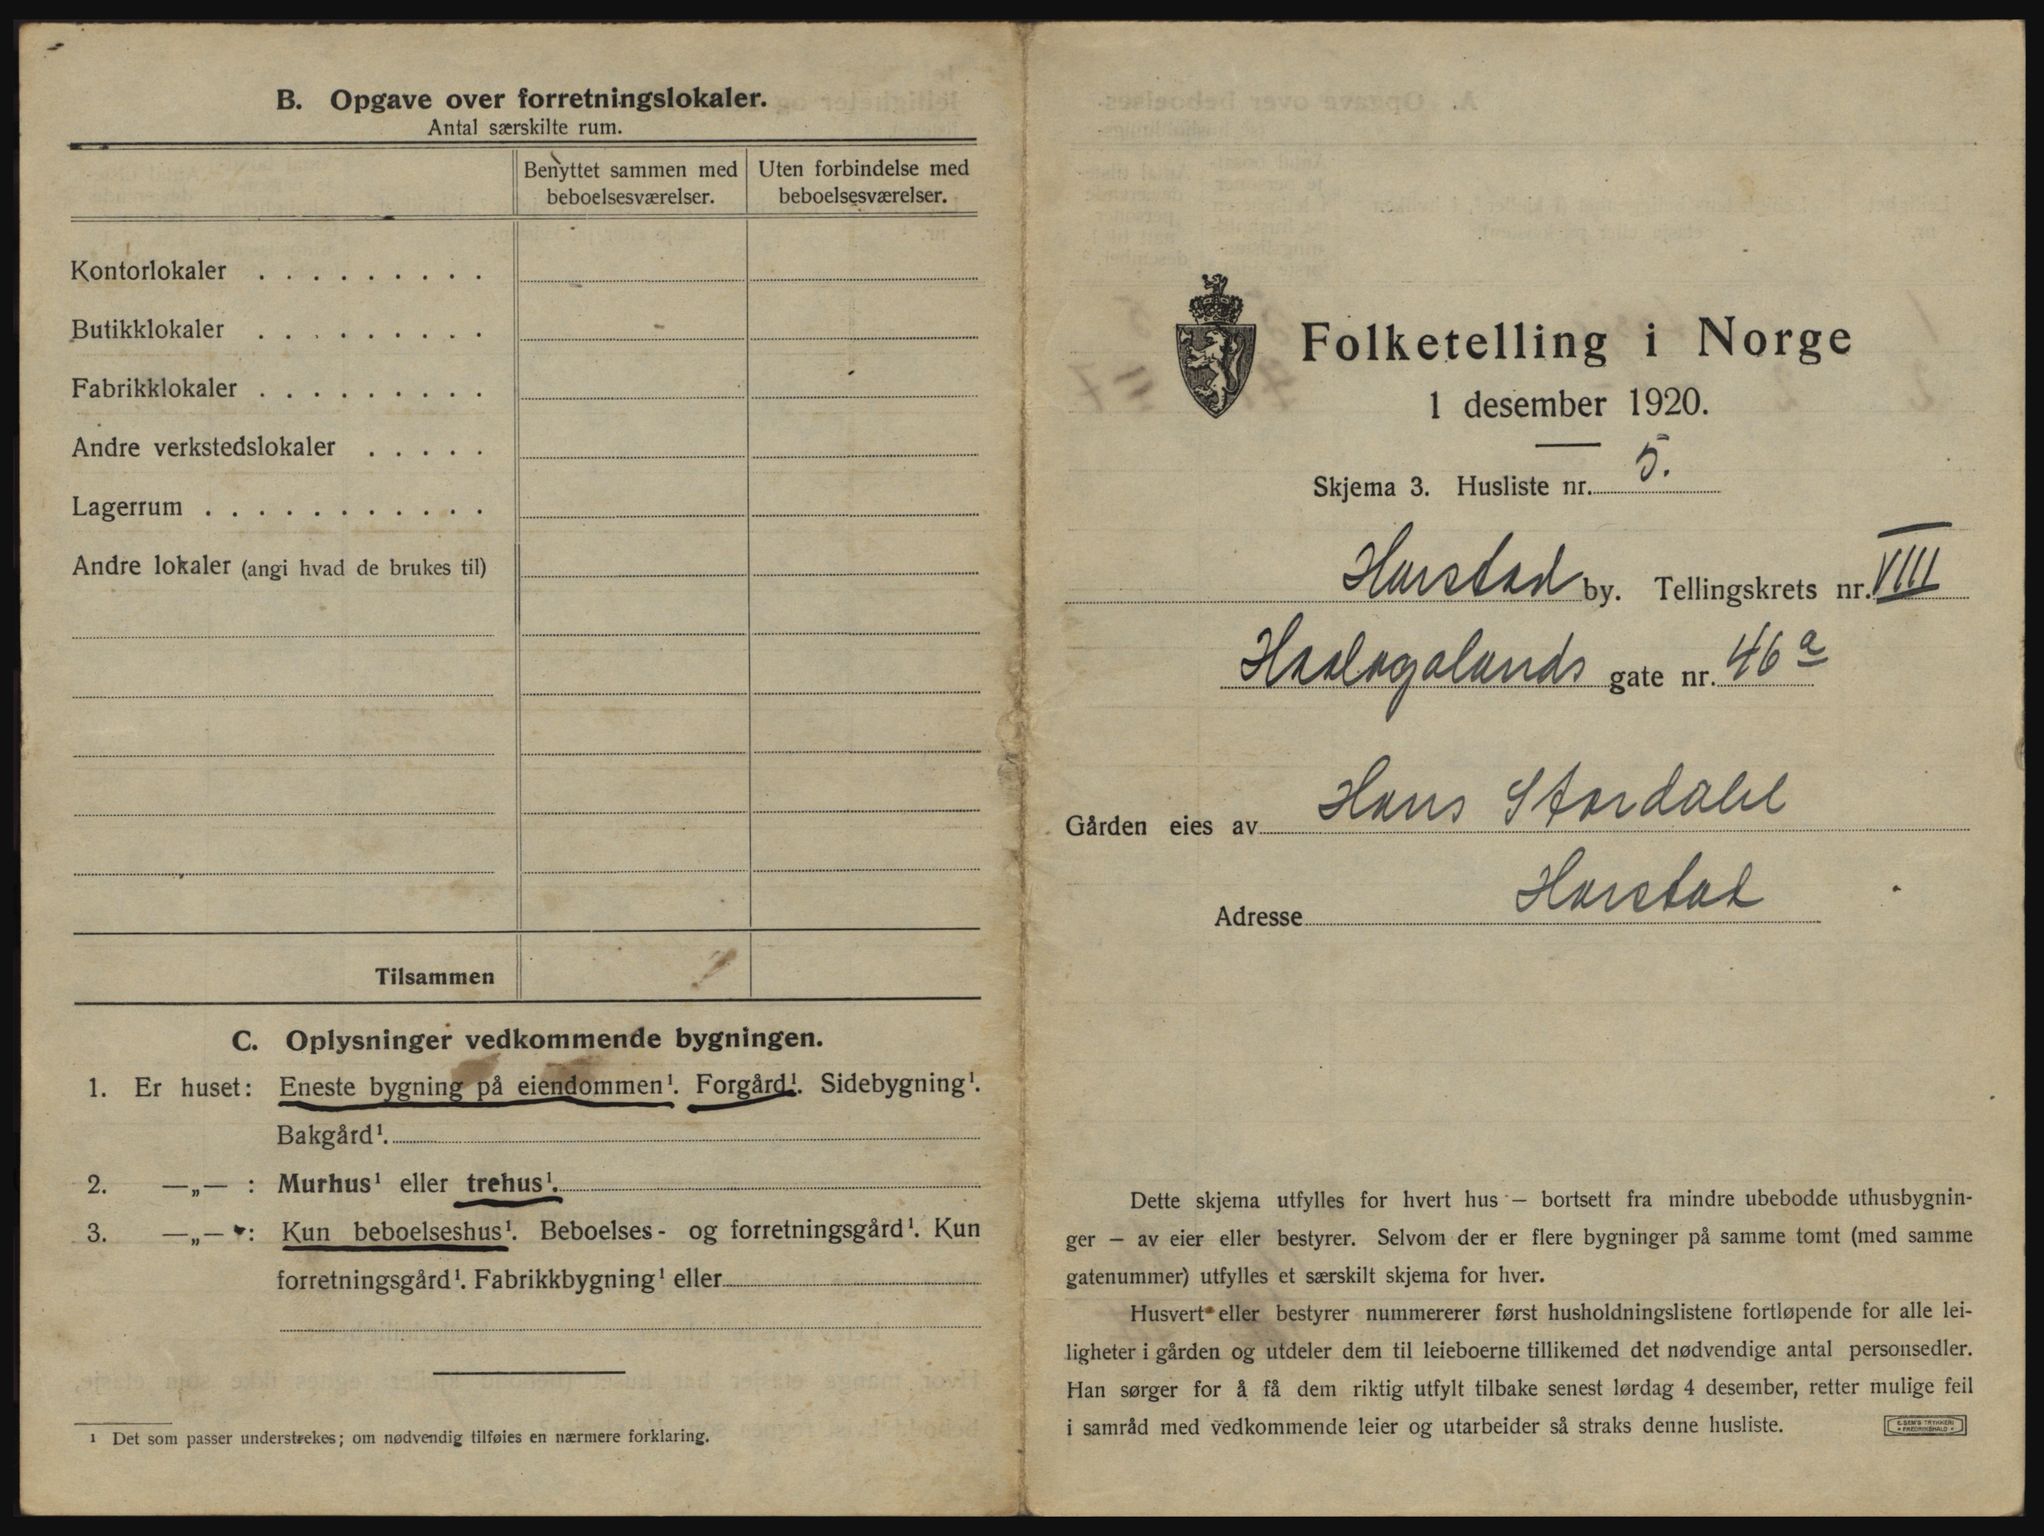 B. Opgave over forretningslokaler.
Antal særskilte rum.
Benyttet sammen med beboelsesværelser.
Uten forbindelse med beboelsesværelser.
Kontorlokaler . . . . . . . . .
Butikklokaler . . . . . . . . .
Fabrikklokaler . . . . . . . . .
Andre verkstedslokaler . . . . .
Lagerrum . . . . . . . . . . .
Andre lokaler (angi hvad de brukes til)
Tilsammen
C. Oplysninger vedkommende bygningen.
1. Er huset: Eneste bygning på eiendommen¹. Forgård¹. Sidebygning¹.
Bakgård¹.
2. —„— : Murhus¹ eller trehus¹.
3. —„— : Kun beboelseshus¹. Beboelses- og forretningsgård¹. Kun
forretningsgård¹. Fabrikkbygning¹ eller
¹ Det som passer understrekes; om nødvendig tilføies en nærmere forklaring.
Folketelling i Norge
1 desember 1920.
Skjema 3. Husliste nr. 5.
Harstad by. Tellingskrets nr. VIII
Haalogalands gate nr. 46 a
Gården eies av Hans Stordahl
Adresse Harstad
Dette skjema utfylles for hvert hus — bortsett fra mindre ubebodde uthusbygnin-
ger — av eier eller bestyrer. Selvom der er flere bygninger på samme tomt (med samme
gatenummer) utfylles et særskilt skjema for hver.
Husvert eller bestyrer nummererer først husholdningslistene fortløpende for alle lei-
ligheter i gården og utdeler dem til leieboerne tillikemed det nødvendige antal personsedler.
Han sørger for å få dem riktig utfylt tilbake senest lørdag 4 desember, retter mulige feil
i samråd med vedkommende leier og utarbeider så straks denne husliste.
E. SEM'S TRYKKERI
FREDRIKSHALD